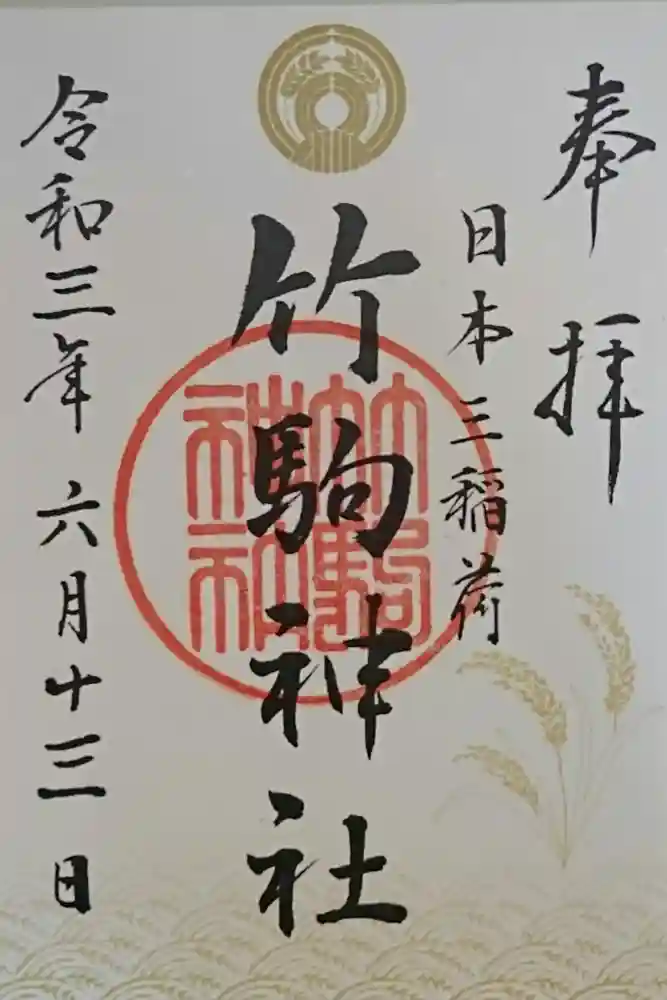 奉拝
日本三稲荷
竹駒神社
竹駒神社
令和三年六月十三日